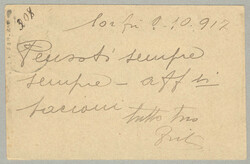 308
Corfù 2.10.912
Pensoti sempre
sempre - aff si
bacioni
tutto tuo